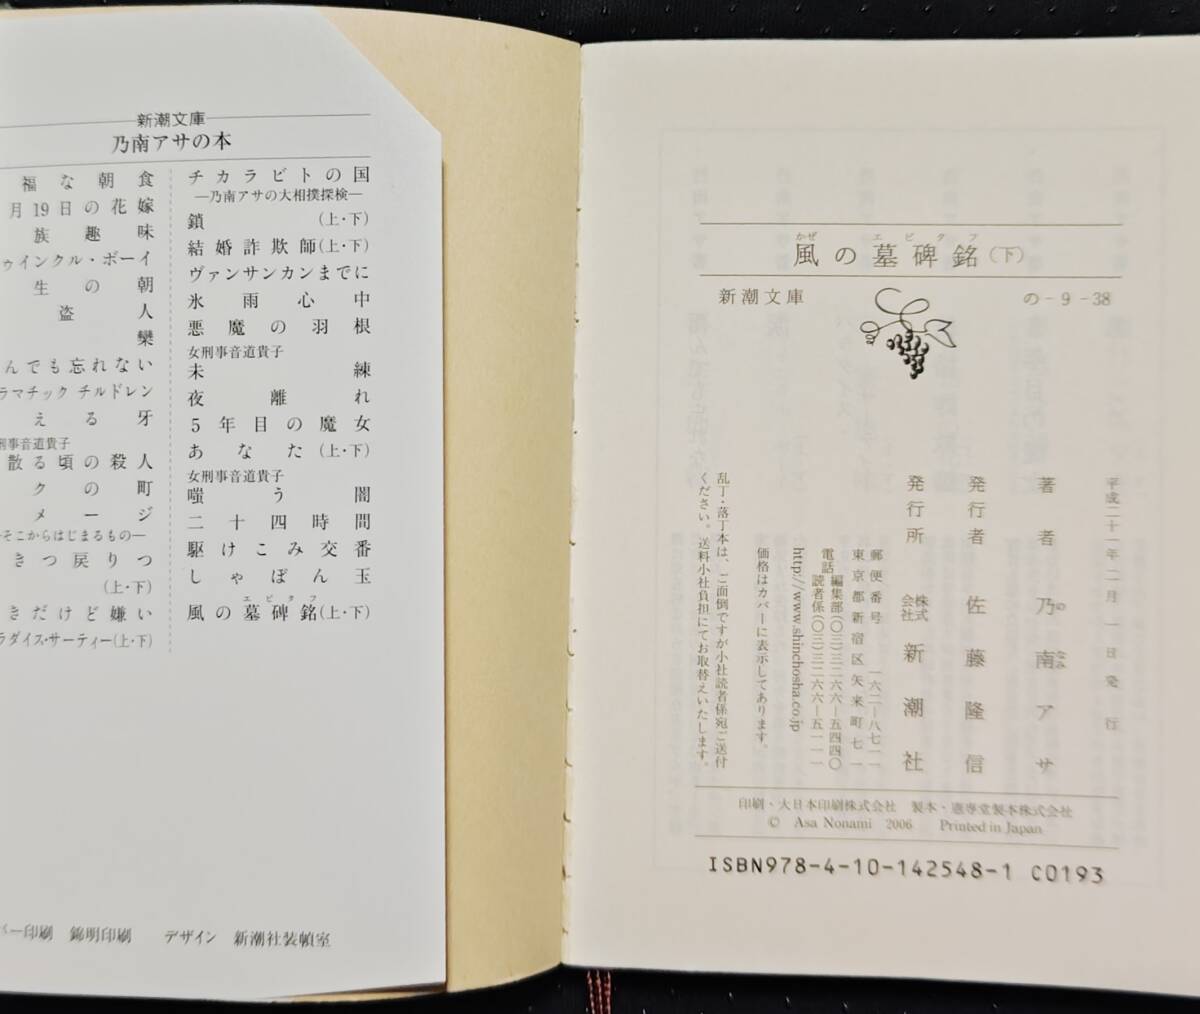 新潮文庫
乃南アサの本
福な朝食
月19日の花嫁
族趣味
ゥインクル・ボーイ
生の朝
盗人
欒
んでも忘れない
ラマチック チルドレン
える牙
刑事音道貴子
散る頃の殺人
クの町
メージ
─そこからはじまるもの─
きつ戻りつ
(上・下)
きだけど嫌い
ラダイス・サーティー(上・下)
チカラビトの国
―乃南アサの大相撲探検―
鎖 (上・下)
結婚詐欺師(上・下)
ヴァンサンカンまでに
氷雨心中
悪魔の羽根
女刑事音道貴子
未練
夜離れ
5年目の魔女
あなた(上・下)
女刑事音道貴子
嗤う闇
二十四時間
駆けこみ交番
しゃぼん玉
エピタフ
風の墓碑銘(上・下)
バー印刷 錦明印刷 デザイン 新潮社装幀室
かぜ エピタフ
風の墓碑銘(下)
新潮文庫 の-9-38
平成二十一年二月一日発行
著者 乃南アサ
のなみ
発行者 佐藤隆信
発行所 株式会社 新潮社
郵便番号 一六二─八七一一
東京都新宿区矢来町七一
電話 編集部(〇三)三二六六─五四四〇
読者係(〇三)三二六六─五一一一
http://www.shinchosha.co.jp
価格はカバーに表示してあります。
乱丁・落丁本は、ご面倒ですが小社読者係宛ご送付
ください。送料小社負担にてお取替えいたします。
印刷・大日本印刷株式会社 製本・憲専堂製本株式会社
© Asa Nonami 2006 Printed in Japan
ISBN978-4-10-142548-1 C0193